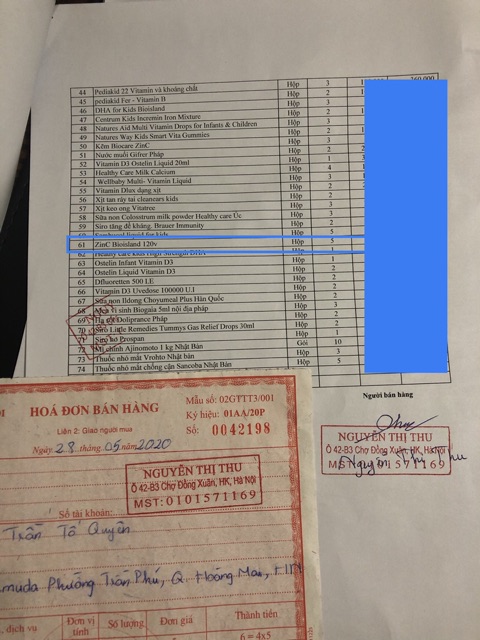 44 Pediakid 22 Vitamin và khoáng chất Hộp 3
45 pediakid Fer - Vitamin B Hộp 2
46 DHA for Kids Bioisland Hộp 3
47 Centrum Kids Incremin Iron Mixture Hộp 2
48 Natures Aid Multi Vitamin Drops for Infants & Children Hộp 3
49 Natures Way Kids Smart Vita Gummies Hộp
50 Kẽm Biocare ZinC Hộp 2
51 Nước muối Gifrer Pháp Hộp 2
52 Vitamin D3 Ostelin Liquid 20ml Hộp 1
53 Healthy Care Milk Calcium Hộp 4
54 Wellbaby Multi- Vitamin Liquid Hộp
55 Vitamin Dlux dạng xịt Hộp 2
56 Xịt tan ráy tai cleanears kids Hộp
57 Xịt keo ong Vitatree Hộp
58 Sữa non Colostrum milk powder Healthy care Úc Hộp
59 Siro tăng đề kháng. Brauer Immunity Hộp 2
60 liquid for kids Hộp 5
61 ZinC Bioisland 120v Hộp 5
62 Healhy care kids High Strength DHA Hộp 1
63 Ostelin Infant Vitamin D3 Hộp
64 Ostelin Liquid Vitamin D3 Hộp 2
65 Dfluoretten 500 LE Hộp
66 Vitamin D3 Uvedose 100000 U.I Hộp 2
67 Sữa non Ildong Choyumeal Plus Hàn Quốc Hộp
68 Men vi sinh Biogaia 5ml nội địa pháp Hộp 3
69 Hạ sốt Doliprance Pháp Hộp 2
70 Siro Little Remedies Tummys Gas Relief Drops 30ml Hộp 2
71 Siro ho Prospan Hộp 1
72 Mì chính Ajinomoto 1 kg Nhật Bản Gói 10
73 Thuốc nhỏ mắt Vrohto Nhật bản Hộp 3
74 Thuốc nhỏ mắt chống cận Sancoba Nhật Bản Hộp 5
Người bán hàng
NGUYỄN THỊ THU
Ô 42-B3 Chợ Đồng Xuân, HK, Hà Nội
MST: 0101571169
Nguyễn Thị Thu
HOÁ ĐƠN BÁN HÀNG
Liên 2: Giao người mua
Ngày 28 tháng 05 / 2020
Mẫu số: 02GTTT3/001
Ký hiệu: 01AA/20P
Số: 0042198
NGUYỄN THỊ THU
Ô 42-B3 Chợ Đồng Xuân, HK, Hà Nội
MST: 0101571169
Số tài khoản:
Trần Tố Quyên
muda Phường Trần Phú, Q Hoàng Mai, HN
dịch vụ Đơn vị tính Số lượng Đơn giá Thành tiền
6 = 4x5